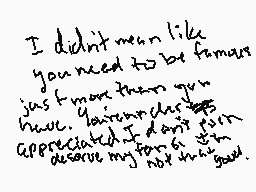 I didn't mean like
you need to be famous
just more than you
have. Your under
appreciated. I don't even
deserve my fans I'm
not that good.